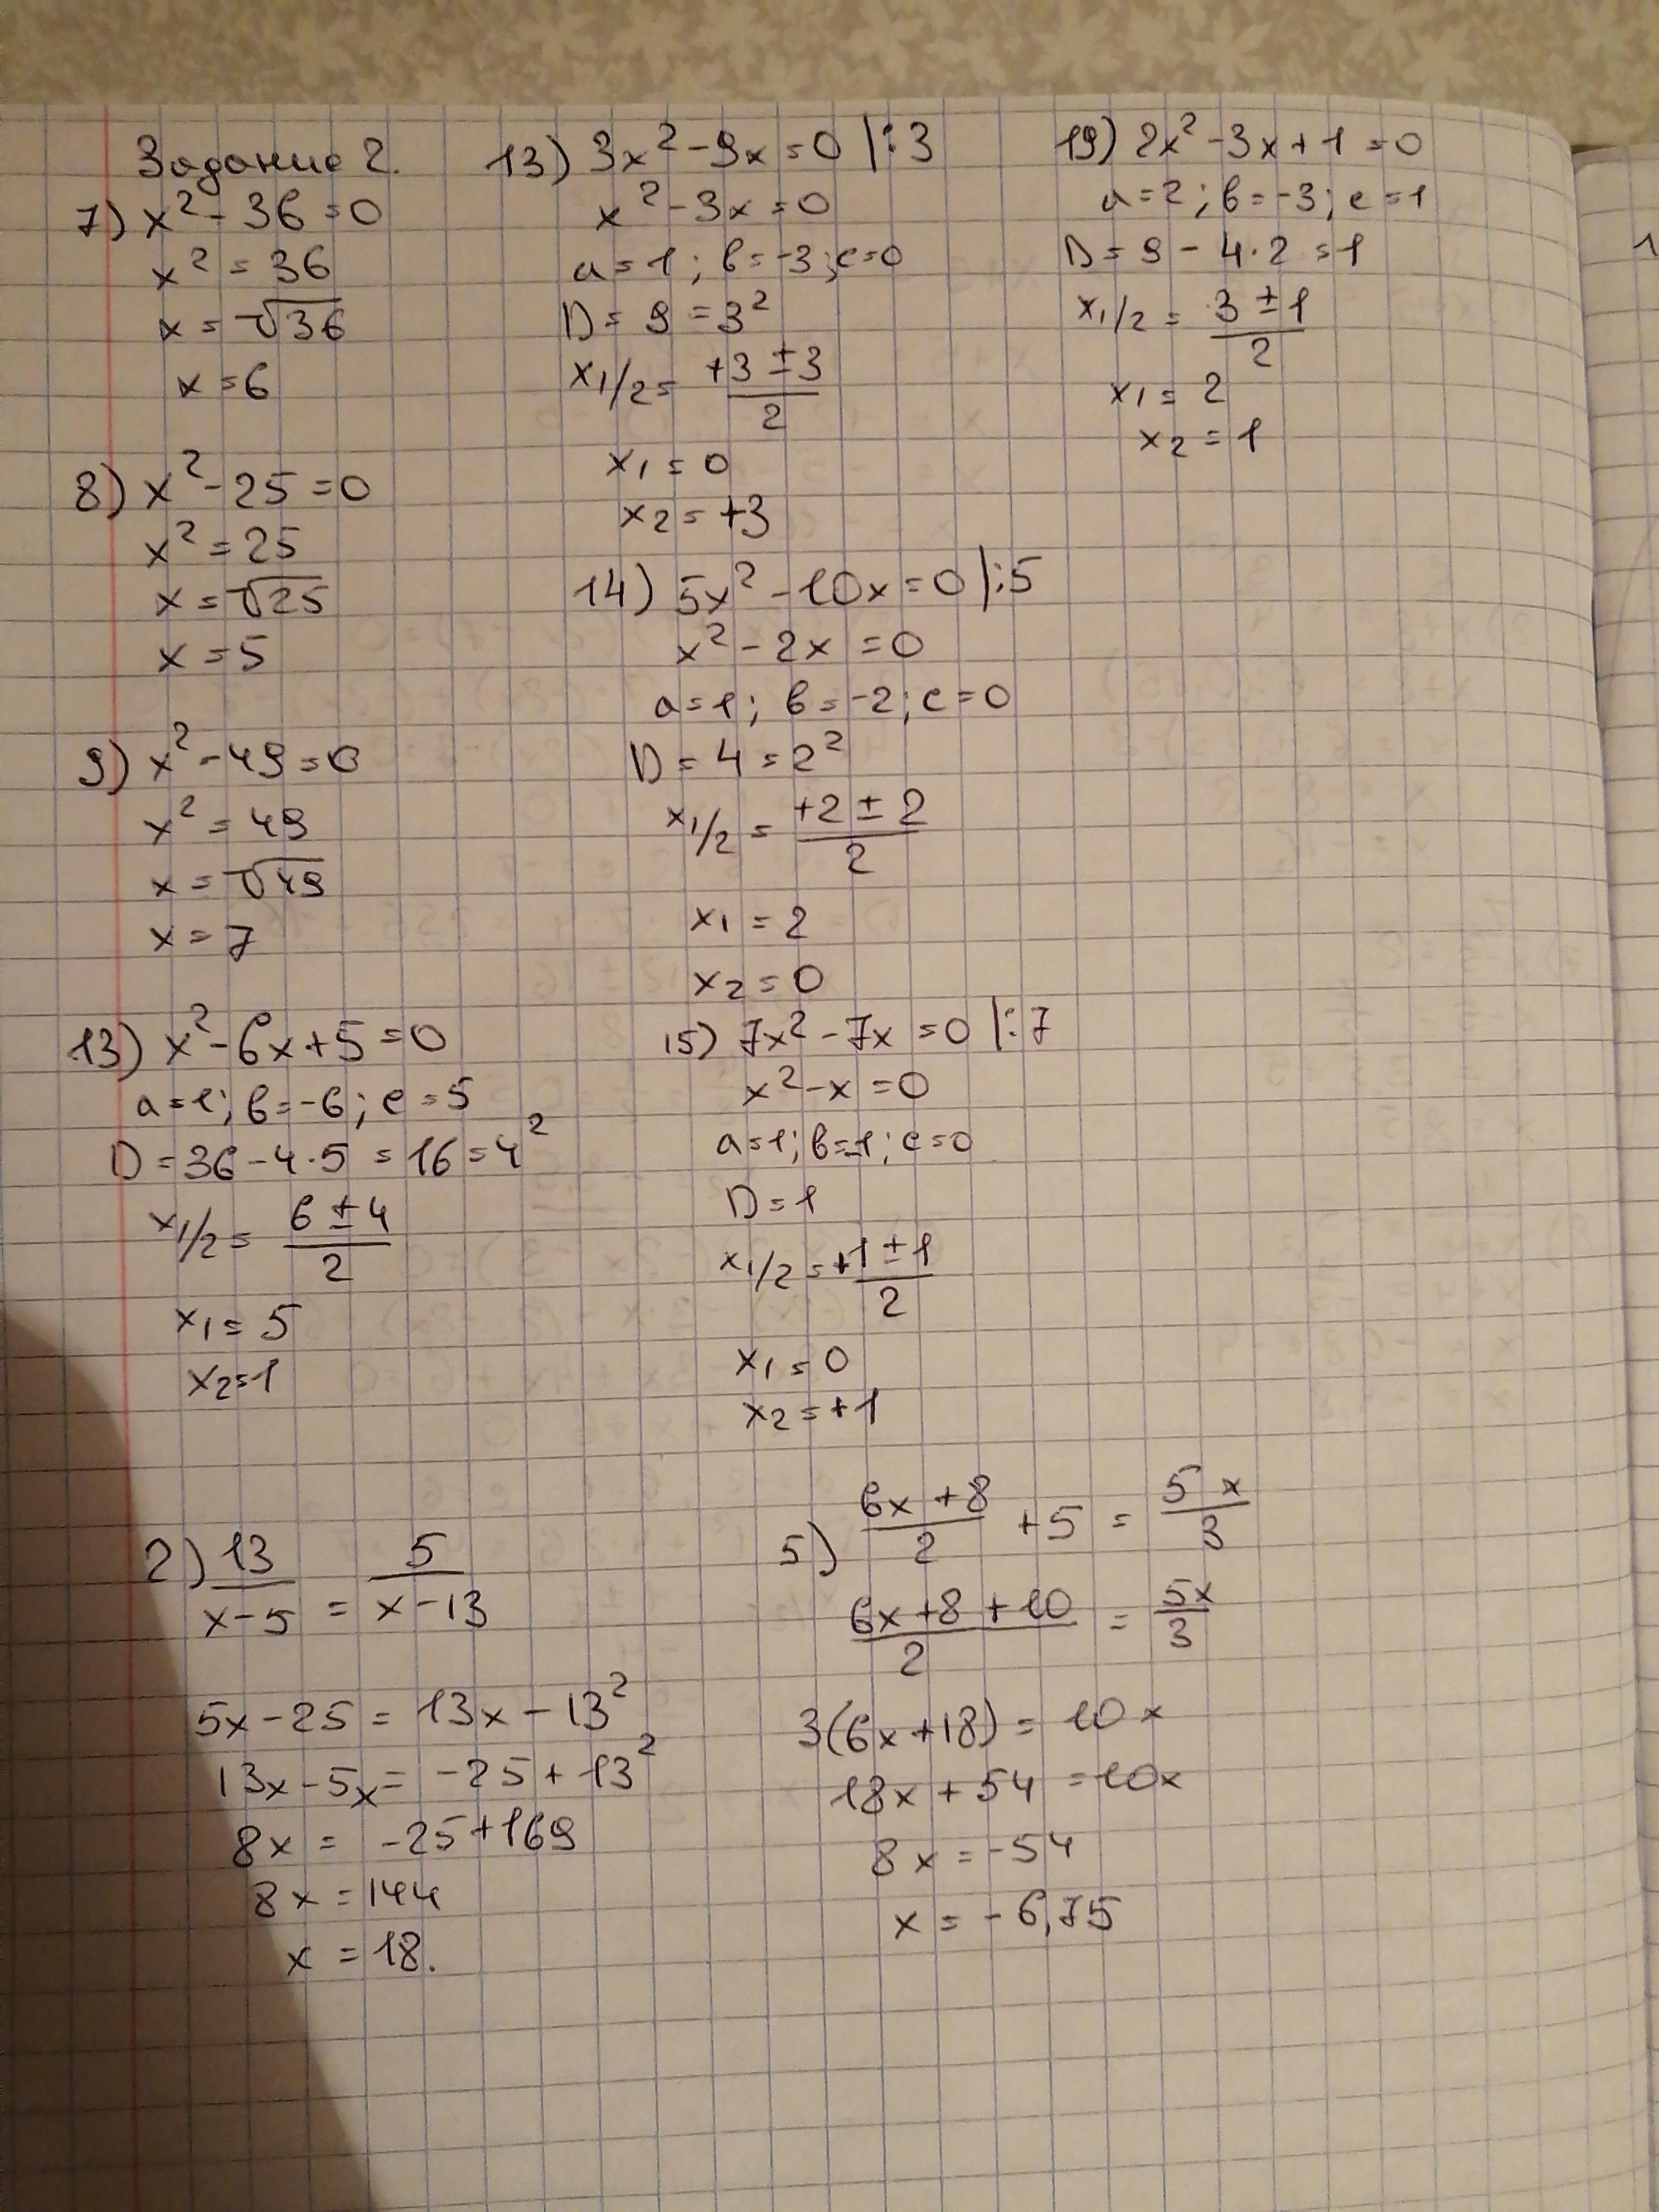 Задание 2.
7) x² - 36 = 0
x² = 36
x = √36
x = 6
8) x² - 25 = 0
x² = 25
x = √25
x = 5
9) x² - 49 = 0
x² = 49
x = √49
x = 7
13) x² - 6x + 5 = 0
a = 1; b = -6; c = 5
D = 36 - 4·5 = 16 = 4²
x1/2 = (6 ± 4)/2
x1 = 5
x2 = 1
13) 3x² - 9x = 0 |:3
x² - 3x = 0
a = 1; b = -3; c = 0
D = 9 = 3²
x1/2 = (+3 ± 3)/2
x1 = 0
x2 = +3
14) 5x² - 10x = 0 |:5
x² - 2x = 0
a = 1; b = -2; c = 0
D = 4 = 2²
x1/2 = (+2 ± 2)/2
x1 = 2
x2 = 0
15) 7x² - 7x = 0 |:7
x² - x = 0
a = 1; b = -1; c = 0
D = 1
x1/2 = (+1 ± 1)/2
x1 = 0
x2 = +1
19) 2x² - 3x + 1 = 0
a = 2; b = -3; c = 1
D = 9 - 4·2 = 1
x1/2 = (3 ± 1)/2
x1 = 2
x2 = 1
2) 13/(x - 5) = 5/(x - 13)
5x - 25 = 13x - 13²
13x - 5x = -25 + 13²
8x = -25 + 169
8x = 144
x = 18.
5) (6x + 8)/2 + 5 = 5x/3
(6x + 8 + 10)/2 = 5x/3
3(6x + 18) = 10x
18x + 54 = 10x
8x = -54
x = -6,75
1